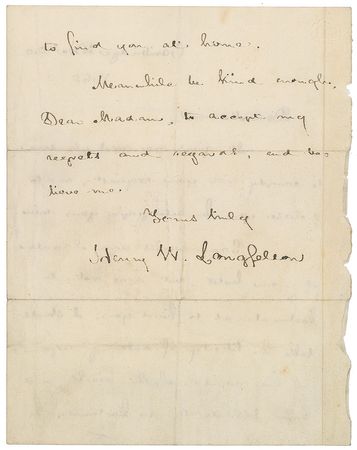 to find you at home.
Meanwhile be kind enough,
Dear Madam, to accept my
respects and regard, and be-
lieve me.
Yours truly
Henry W. Longfellow